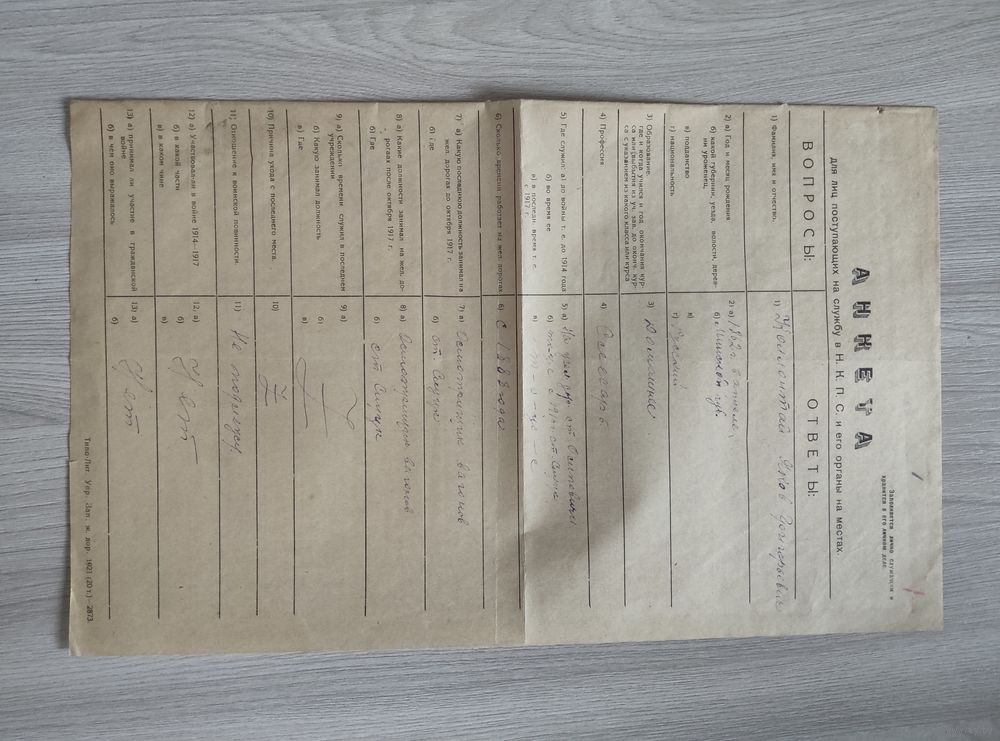 Заполняется лично служащим и
хранится в его личном деле.
АНКЕТА
для лиц поступающих на службу в Н. К. П. С. и его органы на местах.
ВОПРОСЫ: ОТВЕТЫ:
1) Фамилия, имя и отчество. 1) Яков Григорьевич
2) а) Год и месяц рождения 2) а) 1862 г.
б) какой губернии, уезда, волости, дерев- б) губ
ни уроженец,
в) подданство в)
г) национальность г) Русский
3) Образование: 3) Домашнее
где и когда учился и год окончания кур-
са или выбытия из уч. зав. до оконч. кур-
са с указанием из какого класса или курса
4) Профессия 4) Слесарь
5) Где служил: а) до войны т. е. до 1914 года 5) а) ст. Осиповичи
б) во время ее б) ст. Слуцк
в) в последн. время т. е. в) т-о-же-е
с 1917 г.
6) Сколько времени работает на жел. дорогах 6) с 1888 года
7) а) Какую последнюю должность занимал на 7) а) Осмотрщик вагонов
жел. дорогах до октября 1917 г.
б) где б) ст. Слуцк
8) а) Какие должности занимал на жел. до- 8) а) Осмотрщик вагонов
рогах после октября 1917 г.
б) Где б) ст Слуцк
9) а) Сколько времени служил в последнем 9) а)
учреждении
б) Какую занимал должность б)
в) Где в)
10) Причина ухода с последнего места. 10)
11) Отношение к воинской повинности. 11) Не подлежу
12) а) Участвовал ли в войне 1914—1917 12. а)
б) в какой части б) Нет
в) в каком чине в)
13) а) принимал ли участие в гражданской 13) а) Нет
войне
б) в чем оно выражалось б)
Типо-Лит. Упр. Зап. ж. дор. 1921 (20 т.)—2873.